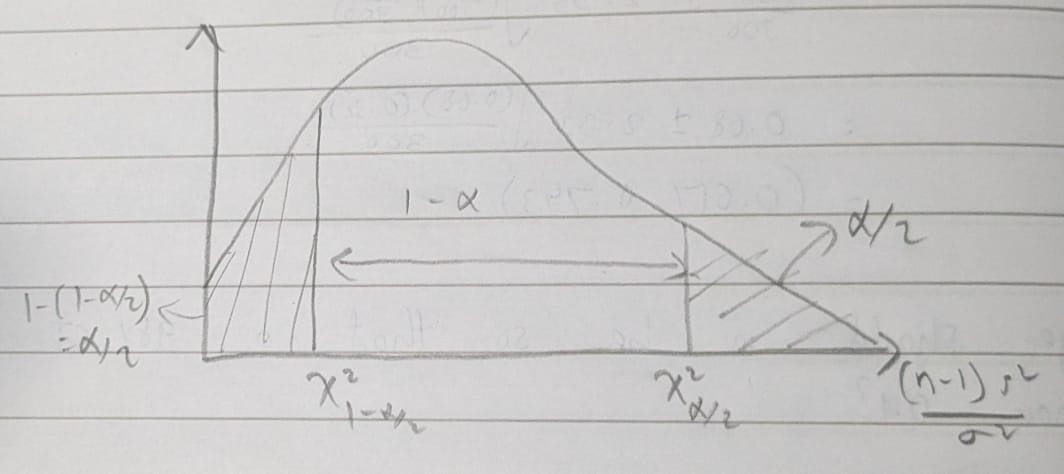 1-α
α/2
1-(1-α/2)
= α/2
χ²_{1-α/2}
χ²_{α/2}
(n-1) s²
σ²